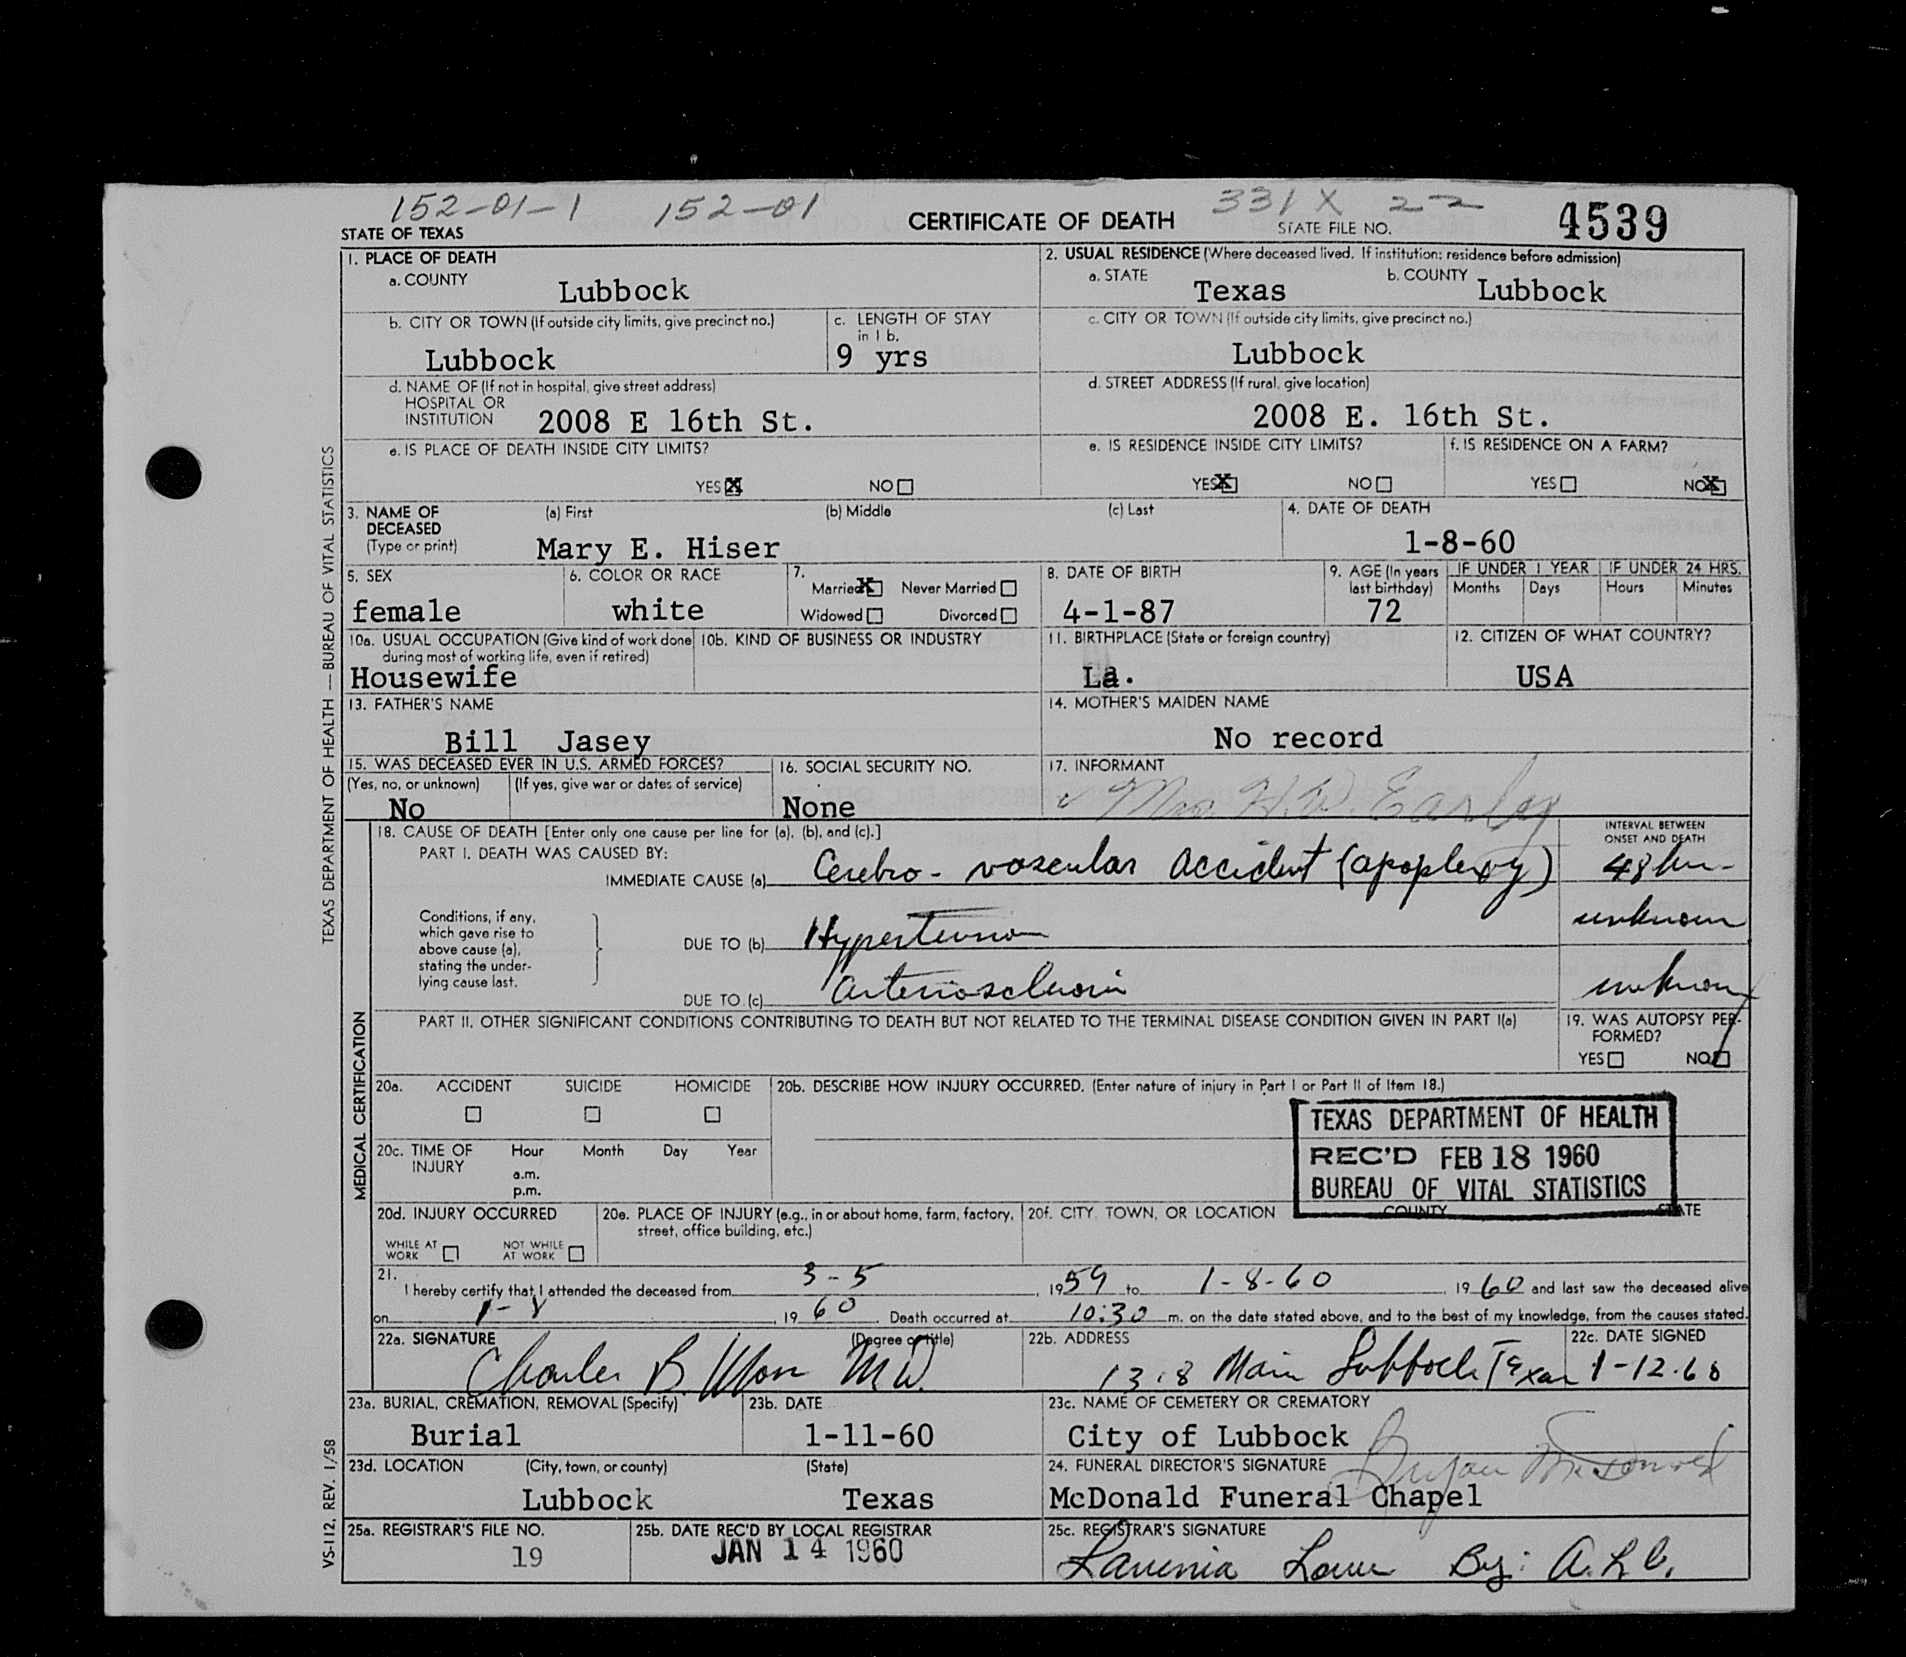 152-01-1 152-01 331X 22
STATE OF TEXAS CERTIFICATE OF DEATH STATE FILE NO. 4539
1. PLACE OF DEATH
a. COUNTY Lubbock
2. USUAL RESIDENCE (Where deceased lived. If institution: residence before admission)
a. STATE Texas b. COUNTY Lubbock
b. CITY OR TOWN (If outside city limits, give precinct no.) Lubbock
c. LENGTH OF STAY in 1 b. 9 yrs
c. CITY OR TOWN (If outside city limits, give precinct no.) Lubbock
d. NAME OF (If not in hospital, give street address)
HOSPITAL OR
INSTITUTION 2008 E 16th St.
d. STREET ADDRESS (If rural, give location)
2008 E. 16th St.
e. IS PLACE OF DEATH INSIDE CITY LIMITS?
YES X NO
e. IS RESIDENCE INSIDE CITY LIMITS?
YES X NO
f. IS RESIDENCE ON A FARM?
YES NO X
3. NAME OF DECEASED (Type or print)
(a) First (b) Middle (c) Last
Mary E. Hiser
4. DATE OF DEATH
1-8-60
5. SEX
female
6. COLOR OR RACE
white
7. Married X Never Married
Widowed Divorced
8. DATE OF BIRTH
4-1-87
9. AGE (In years last birthday)
72
IF UNDER 1 YEAR IF UNDER 24 HRS.
Months Days Hours Minutes
10a. USUAL OCCUPATION (Give kind of work done during most of working life, even if retired)
Housewife
10b. KIND OF BUSINESS OR INDUSTRY
11. BIRTHPLACE (State or foreign country)
La.
12. CITIZEN OF WHAT COUNTRY?
USA
13. FATHER'S NAME
Bill Jasey
14. MOTHER'S MAIDEN NAME
No record
15. WAS DECEASED EVER IN U.S. ARMED FORCES?
(Yes, no, or unknown) (If yes, give war or dates of service)
No
16. SOCIAL SECURITY NO.
None
17. INFORMANT
Mrs. H. W. Earley
MEDICAL CERTIFICATION
18. CAUSE OF DEATH [Enter only one cause per line for (a), (b), and (c).]
PART I. DEATH WAS CAUSED BY:
IMMEDIATE CAUSE (a) Cerebro-vascular accident (apoplexy)
INTERVAL BETWEEN ONSET AND DEATH
48 hr
Conditions, if any, which gave rise to above cause (a), stating the underlying cause last.
DUE TO (b) Hypertension unknown
DUE TO (c) arteriosclerosis unknown
PART II. OTHER SIGNIFICANT CONDITIONS CONTRIBUTING TO DEATH BUT NOT RELATED TO THE TERMINAL DISEASE CONDITION GIVEN IN PART I(a)
19. WAS AUTOPSY PERFORMED?
YES NO
20a. ACCIDENT SUICIDE HOMICIDE
20b. DESCRIBE HOW INJURY OCCURRED. (Enter nature of injury in Part I or Part II of Item 18.)
TEXAS DEPARTMENT OF HEALTH
REC'D FEB 18 1960
BUREAU OF VITAL STATISTICS
20c. TIME OF INJURY
Hour Month Day Year
a.m.
p.m.
20d. INJURY OCCURRED
WHILE AT WORK NOT WHILE AT WORK
20e. PLACE OF INJURY (e.g., in or about home, farm, factory, street, office building, etc.)
20f. CITY, TOWN, OR LOCATION COUNTY STATE
21. I hereby certify that I attended the deceased from 3-5, 1959 to 1-8-60, 1960 and last saw the deceased alive
on 1-8, 1960. Death occurred at 10:30 m. on the date stated above, and to the best of my knowledge, from the causes stated.
22a. SIGNATURE (Degree or title)
Charles B. M.D.
22b. ADDRESS
1318 Main Lubbock Texas
22c. DATE SIGNED
1-12-60
23a. BURIAL, CREMATION, REMOVAL (Specify)
Burial
23b. DATE
1-11-60
23c. NAME OF CEMETERY OR CREMATORY
City of Lubbock
23d. LOCATION (City, town, or county) (State)
Lubbock Texas
24. FUNERAL DIRECTOR'S SIGNATURE
McDonald Funeral Chapel
25a. REGISTRAR'S FILE NO.
19
25b. DATE REC'D BY LOCAL REGISTRAR
JAN 14 1960
25c. REGISTRAR'S SIGNATURE
Lavenia Lowe By:
TEXAS DEPARTMENT OF HEALTH — BUREAU OF VITAL STATISTICS
VS-112, REV. 1/58